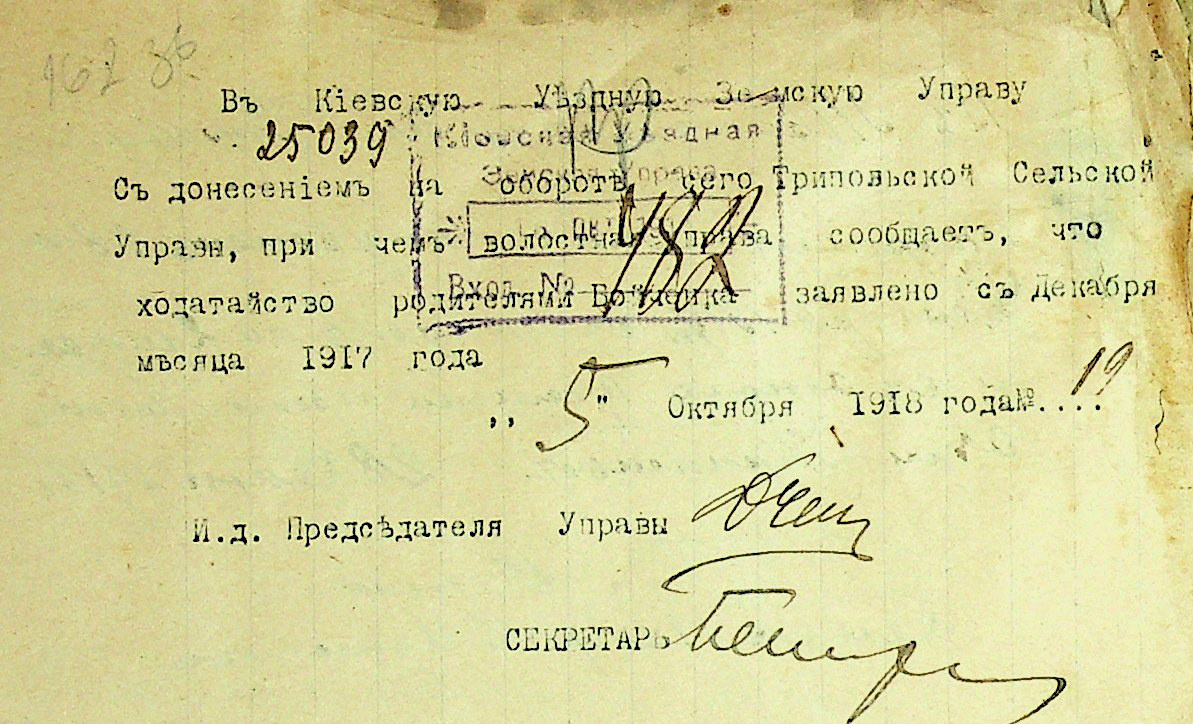 162 зв
Въ Кіевскую Уѣздную Земскую Управу
25039
Кіевская Уѣздная
Земская Управа
Вход. №
482
Съ донесеніемъ на оборотѣ чего Трипольской Сельской
Управы, при чемъ волостная Управа сообщаетъ, что
ходатайство родителями Бойченка заявлено съ Декабря
мѣсяца 1917 года
,, 5" Октября 1918 года №....19
И.д. Предсѣдателя Управы
СЕКРЕТАРЬ